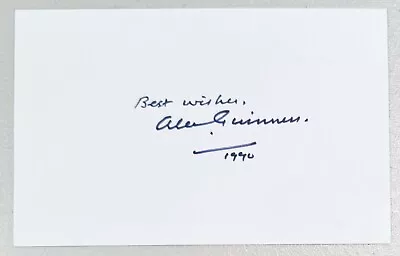 Best wishes,
Alec Guinness.
1990